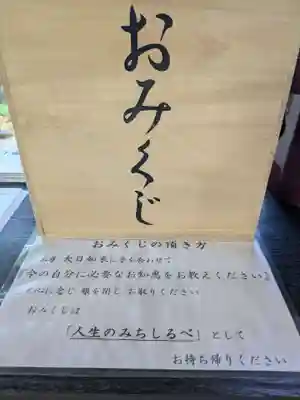 おみくじ
おみくじの頂き方
大日如来に手を合わせて
「今の自分に必要なお知恵をお教えください」
と心に念じ 眼を閉じ お取りください
おみくじは
「人生のみちしるべ」として
お持ち帰りください